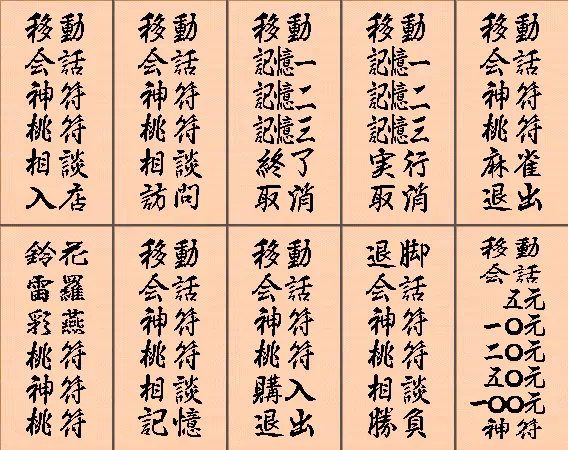 移動
会話
神符
桃符
相談
入店
移動
会話
神符
桃符
相談
訪問
移動
記憶一
記憶二
記憶三
終了
取消
移動
記憶一
記憶二
記憶三
実行
取消
移動
会話
神符
桃符
麻雀
退出
鈴花
雷羅
彩燕
桃符
神符
桃符
移動
会話
神符
桃符
相談
記憶
移動
会話
神符
桃符
購入
退出
退脚
会話
神符
桃符
相談
勝負
移動
会話
五元
一〇元
二〇元
五〇元
一〇〇元
神符